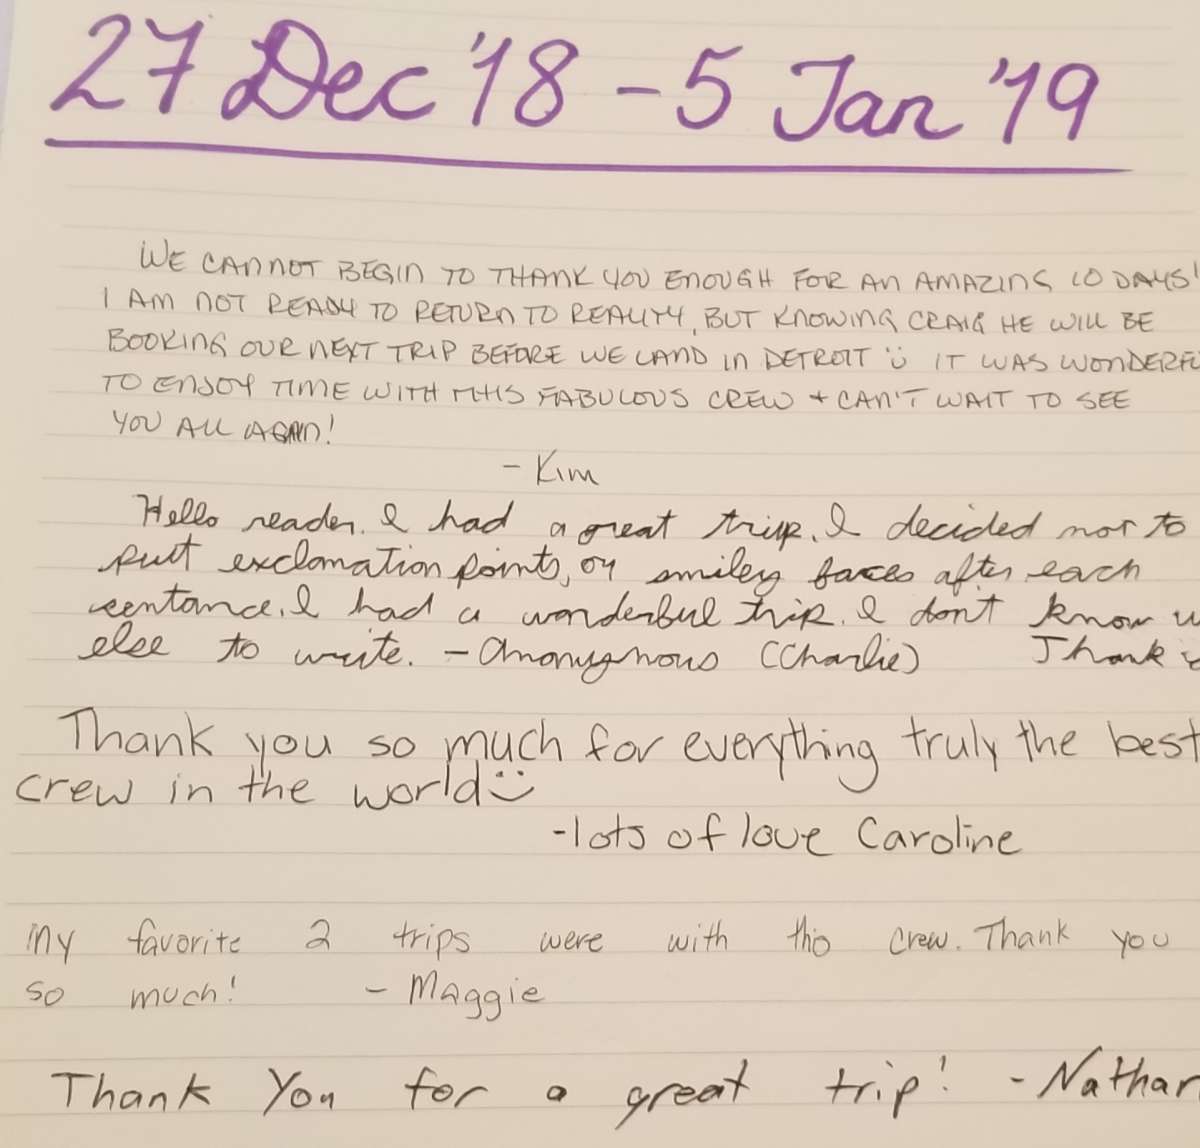 27 Dec '18 - 5 Jan '19
WE CANNOT BEGIN TO THANK YOU ENOUGH FOR AN AMAZING 10 DAYS!
I AM NOT READY TO RETURN TO REALITY, BUT KNOWING CRAIG HE WILL BE
BOOKING OUR NEXT TRIP BEFORE WE LAND IN DETROIT ü IT WAS WONDERFU
TO ENJOY TIME WITH THIS FABULOUS CREW + CAN'T WAIT TO SEE
YOU ALL AGAIN!
- KIM
Hello reader. I had a great trip. I decided not to
put exclamation points, or smiley faces after each
sentance. I had a wonderful trip. I don't know
else to write. - Anonymous (Charlie) Thank
Thank you so much for everything truly the best
crew in the world :)
- lots of love Caroline
My favorite 2 trips were with this crew. Thank you
so much! - Maggie
Thank You for a great trip! - Nathan